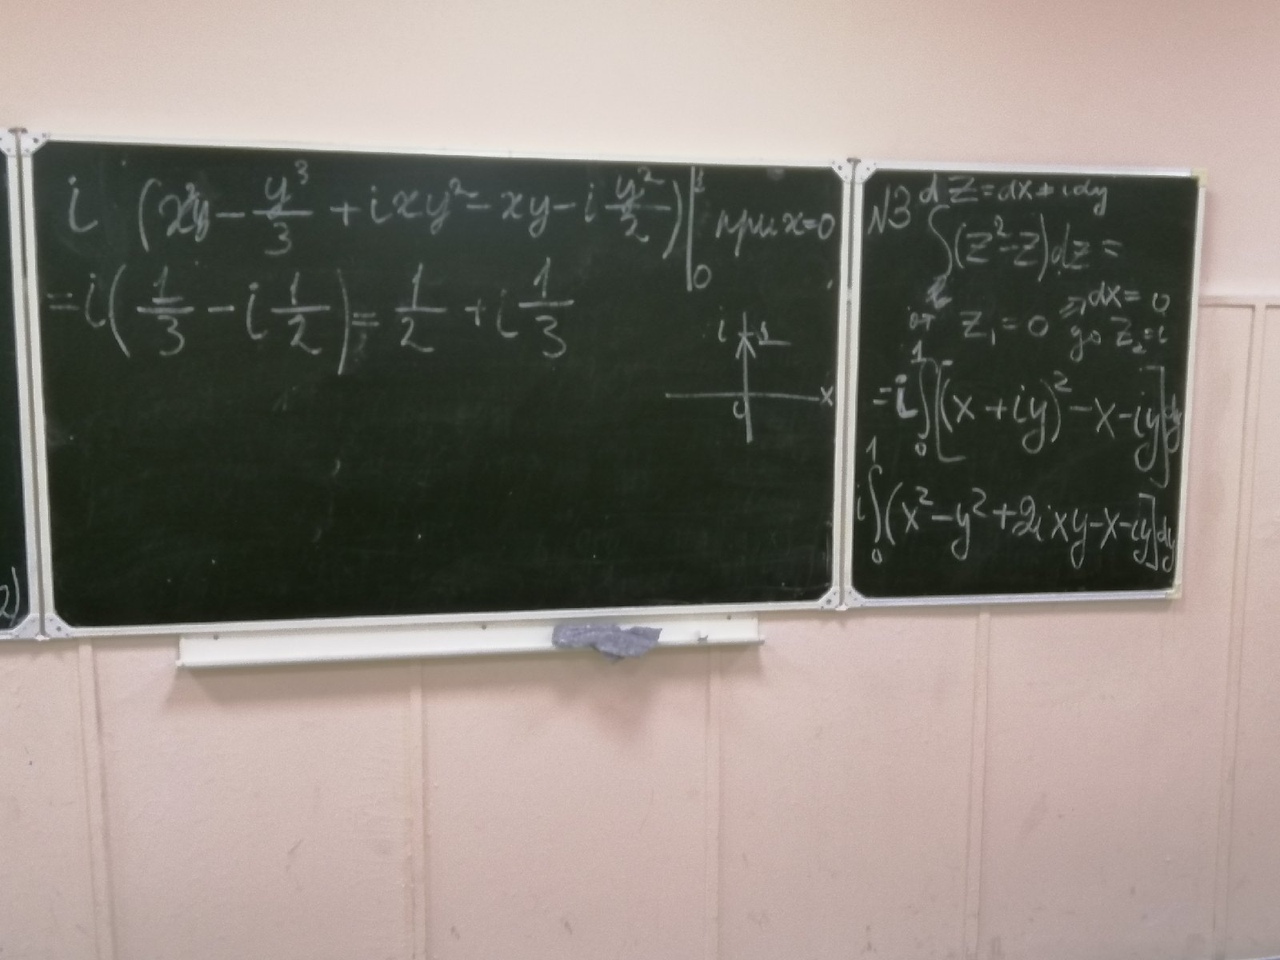 i (x²y - y³/3 + ixy² - xy - i y²/2) |₀¹ при x=0
= i(1/3 - i 1/2) = 1/2 + i 1/3
i 1
x
0
2)
N3 dz = dx + idy
∫(z² - z)dz =
от z₁ = 0 ⇒ dx = 0
до z₂ = i
= i ∫₀¹ [(x + iy)² - x - iy] dy
i ∫₀¹ (x² - y² + 2ixy - x - iy] dy